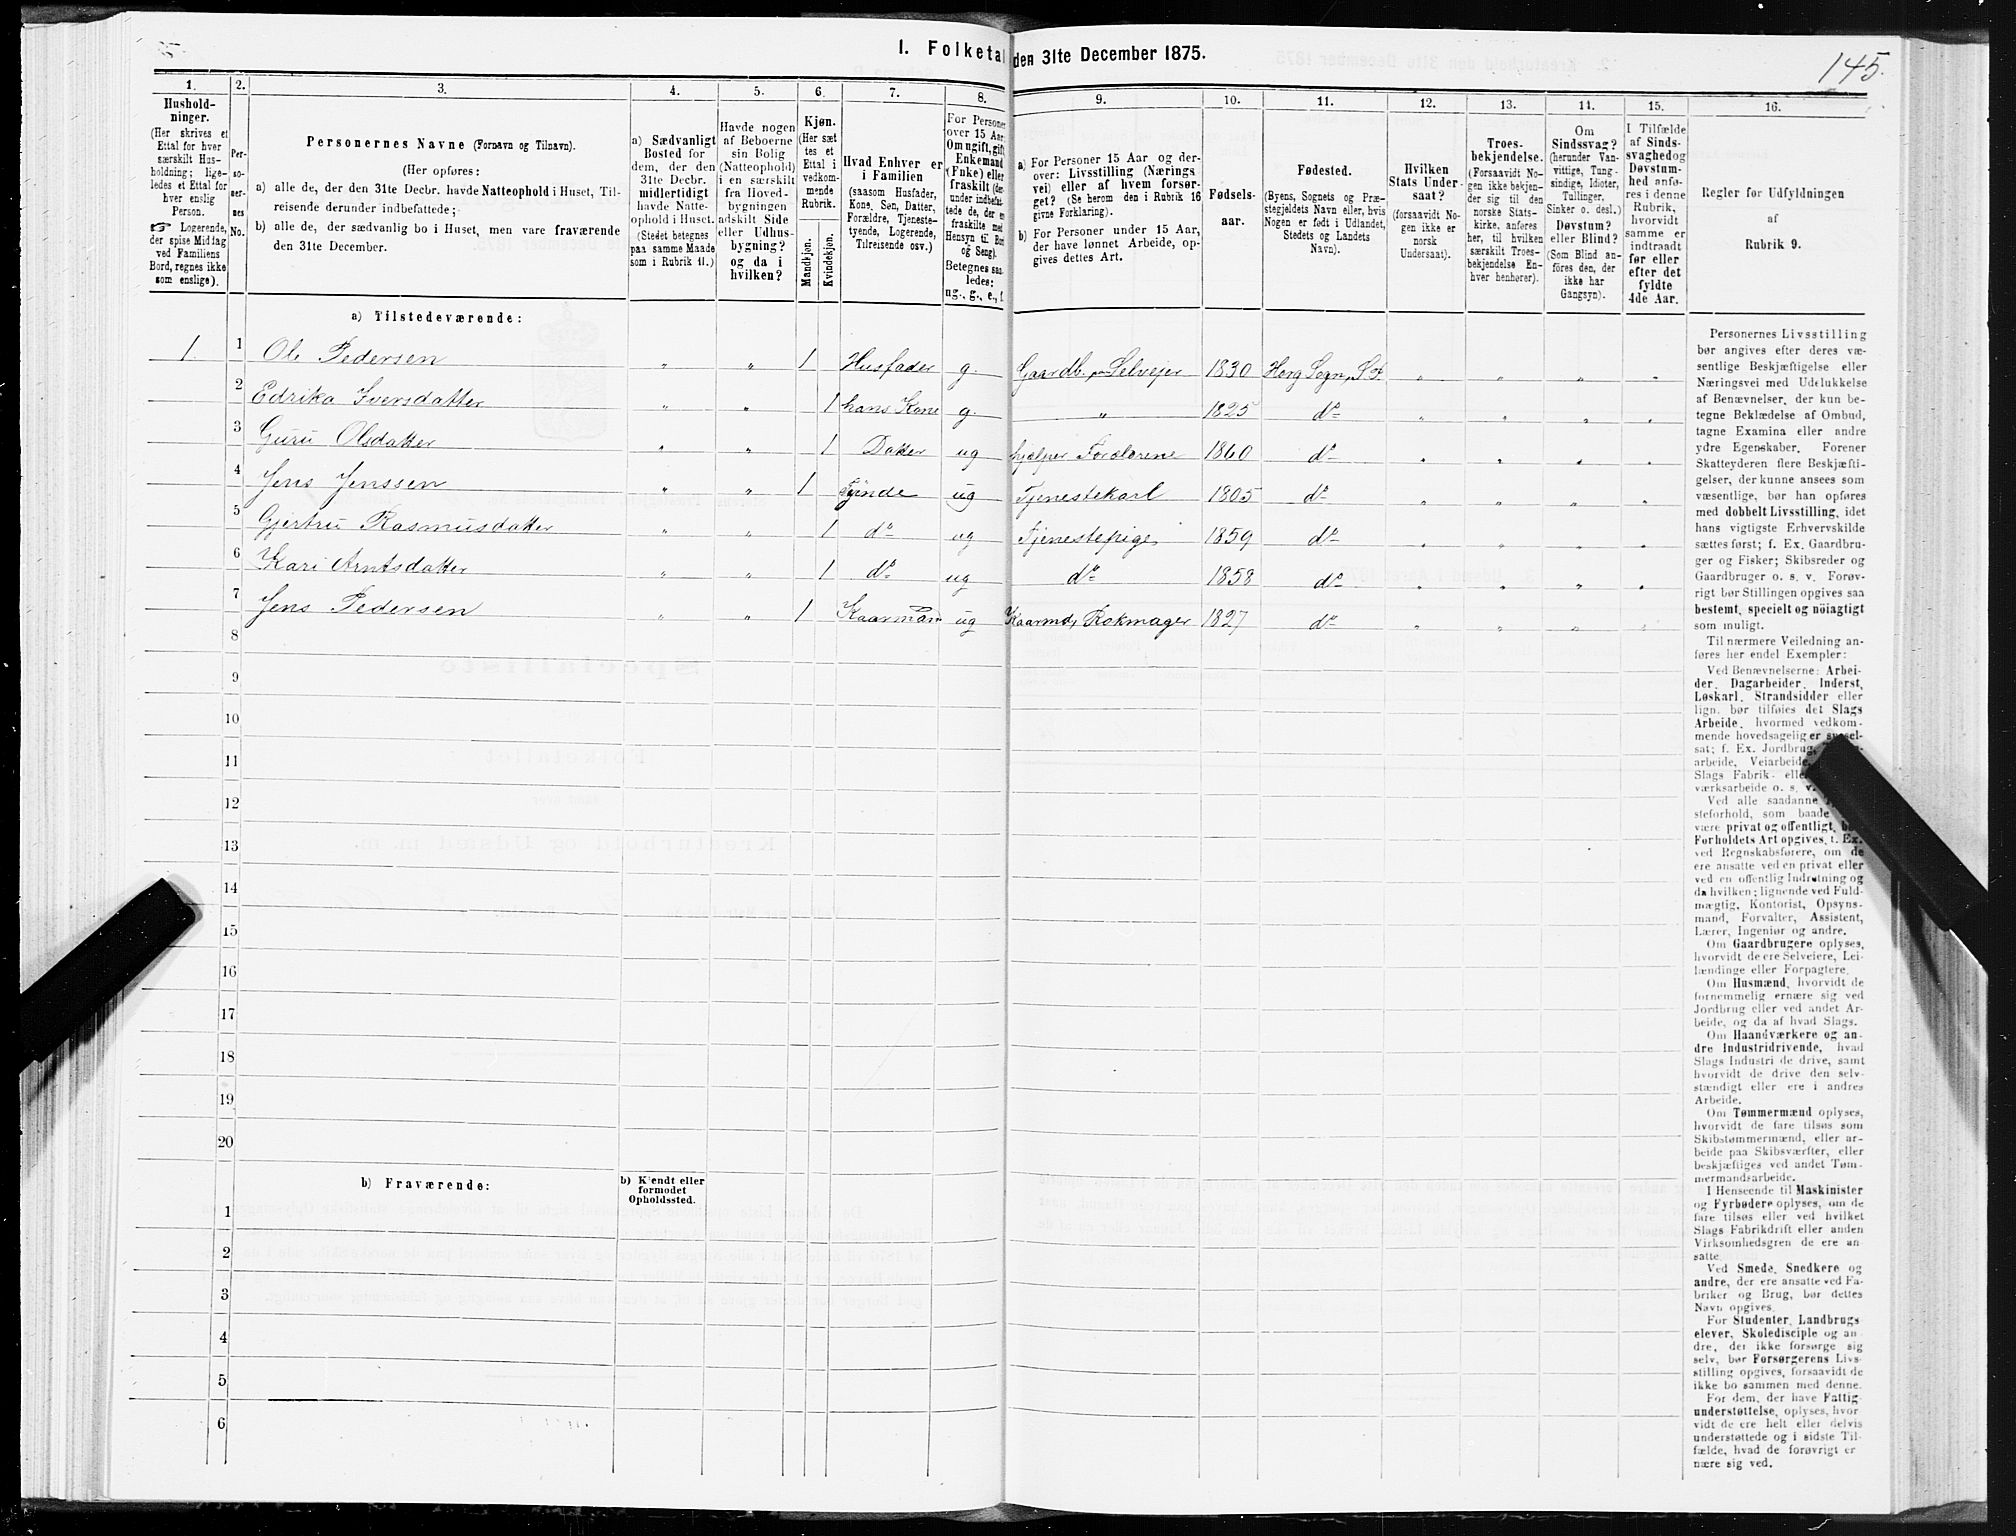 I. Folketal den 31te December 1875.
145.
1. 2. 3. 4. 5. 6. 7. 8. 9. 10. 11. 12. 13. 14. 15. 16.
Hushold-
ninger.
(Her skrives et
Ettal for hver
særskilt Hus-
holdning; lige-
ledes et Ettal for
hver enslig
Person.
☞ Logerende,
der spise Middag
ved Familiens
Bord, regnes ikke
som enslige).
Per-
so-
ner-
nes
No.
Personernes Navne (Fornavn og Tilnavn).
(Her opføres:
a) alle de, der den 31te Decbr. havde Natteophold i Huset, Til-
reisende derunder indbefattede;
b) alle de, der sædvanlig bo i Huset, men vare fraværende
den 31te December.
a) Sædvanligt
Bosted for
dem, der den
31te Decbr.
midlertidigt
havde Natte-
ophold i Huset.
(Stedet betegnes
paa samme Maade
som i Rubrik 11.)
Havde nogen
af Beboerne
sin Bolig
(Natteophold)
i en særskilt
fra Hoved-
bygningen
adskilt Side
eller Udhus-
bygning?
og da i
hvilken?
Kjøn.
(Her sæt
tes et
Ettal i
vedkom-
mende
Rubrik.
Mandkjøn.
Kvindekjøn.
Hvad Enhver er
i Familien
(saasom Husfader,
Kone, Søn, Datter,
Forældre, Tjeneste-
tyende, Logerende,
Tilreisende osv.)
For Personer
over 15 Aar:
Om ugift, gift
Enkemand
(Enke) eller
fraskilt (der-
under indbefat-
tede de, der ere
fraskilte med
Hensyn til Bord
og Seng).
Betegnes saa-
ledes:
ug., g., e., f.
a) For Personer 15 Aar og der-
over: Livsstilling (Nærings
vei) eller af hvem forsør-
get? (Se herom den i Rubrik 16
givne Forklaring).
b) For Personer under 15 Aar,
der have lønnet Arbeide, op-
gives dettes Art.
Fødsels-
aar.
Fødested.
(Byens, Sognets og Præ-
stegjeldets Navn eller, hvis
Nogen er født i Udlandet,
Stedets og Landets
Navn).
Hvilken
Stats Under-
saat?
(forsaavidt No-
gen ikke er
norsk
Undersaat).
Troes-
bekjendelse.
(Forsaavidt No-
gen ikke bekjen-
der sig til den
norske Stats-
kirke, anføres
her, til hvilken
særskilt Troes-
bekjendelse En-
hver henhører).
Om
Sindssvag?
(herunder Van-
vittige, Tung-
sindige, Idioter,
Tullinger,
Sinker o. desl.)
Døvstum?
eller Blind?
(Som Blind an-
føres den, der
ikke har
Gangsyn).
I Tilfælde
af Sinds-
svaghed og
Døvstum-
hed anfø-
res i denne
Rubrik,
hvorvidt
samme er
indtraadt
før eller
efter det
fyldte
4de Aar.
Regler før Udfyldningen
af
Rubrik 9.
a) Tilstedeværende:
1. 1 Ole Pedersen „ „ 1 Husfader g. Gaardb. „ Selvejer 1830 Horg Sogn, S.P. „ „ „ „
2 Edrika Iversdatter „ „ 1 hans Kone g. „ 1825 do „ „ „ „
3 Guru Olsdatter „ „ 1 Datter ug hjælper Forældrene 1860 do „ „ „ „
4 Jens Jenssen „ „ 1 Tyende ug Tjenestekarl 1805 do „ „ „ „
5 Gjertru Rasmusdatter „ „ 1 do ug Tjenestepige 1859 do „ „ „ „
6 Kari Arntsdatter „ „ 1 do ug do 1858 do „ „ „ „
7 Jens Pedersen „ „ 1 Kaarman ug Kaarmd, Rokmager 1827 do „ „ „ „
8
9
10
11
12
13
14
15
16
17
18
19
20
b) Fraværende:
b) Kjendt eller
formodet
Opholdssted.
1
2
3
4
5
6
Personernes Livsstilling
bør angives efter deres væ-
sentlige Beskjæftigelse eller
Næringsvei med Udelukkelse
af Benævnelser, der kun be-
tegne Beklædelse af Ombud,
tagne Examina eller andre
ydre Egenskaber. Forener
Skatteyderen flere Beskjæfti-
gelser, der kunne ansees som
væsentlige, bør han opføres
med dobbelt Livsstilling, idet
hans vigtigste Erhvervskilde
sættes først; f. Ex. Gaardbru-
ger og Fisker; Skibsreder og
Gaardbruger o. s. v. Forøv-
rigt bør Stillingen opgives saa
bestemt, specielt og nöiagtigt
som muligt.
Til nærmere Veiledning an-
føres her endel Exempler:
Ved Benævnelserne: Arbei-
der, Dagarbeider, Inderst,
Løskarl, Strandsidder eller
lign. bør tilføies det Slags
Arbeide, hvormed vedkom-
mende hovedsagelig er syssel-
sat; f. Ex. Jordbrug,
arbeide, Veiarbeide,
Slags Fabrik- eller
værksarbeide o. s. v.
Ved alle saadanne
steforhold, som baade
være privat og offentligt, bør
Forholdets Art opgives, t. Ex.
ved Regnskabsførere, om de
ere ansatte ved en privat eller
ved en offentlig Indretning og
da hvilken; lignende ved Fuld-
mægtig, Kontorist, Opsyns-
mand, Forvalter, Assistent,
Lærer, Ingeniør og andre.
Om Gaardbrugere oplyses,
hvorvidt de ere Selveiere, Lei-
lændinge eller Forpagtere.
Om Husmænd, hvorvidt de
fornemmelig ernære sig ved
Jordbrug eller ved andet Ar-
beide, og da af hvad Slags.
Om Haandværkere og an-
dre Industridrivende, hvad
Slags Industri de drive, samt
hvorvidt de drive den selv-
stændigt eller ere i andres
Arbeide.
Om Tømmermænd oplyses,
hvorvidt de fare tilsøs som
Skibstømmermænd, eller ar-
beide paa Skibsværfter, eller
beskjæftiges ved andet Tøm-
mermandsarbeide.
I Henseende til Maskinister
og Fyrbødere oplyses, om de
fare tilsøs eller ved hvilket
Slags Fabrikdrift eller anden
Virksomhedsgren de ere an
satte.
Ved Smede, Snedkere og
andre, der ere ansatte ved Fa-
briker og Brug, bør dettes
Navn opgives.
For Studenter, Landbrugs
elever, Skoledisciple og an
dre, der ikke forsørge sig
selv, bør Forsørgerens Livs-
stilling opgives, forsaavidt de
ikke bo sammen med denne.
For dem, der have Fattig-
understøttelse, oplyses, hvor
vidt de ere helt eller delvis
understøttede og i sidste Til-
fælde, hvad de forøvrigt er
nære sig ved.